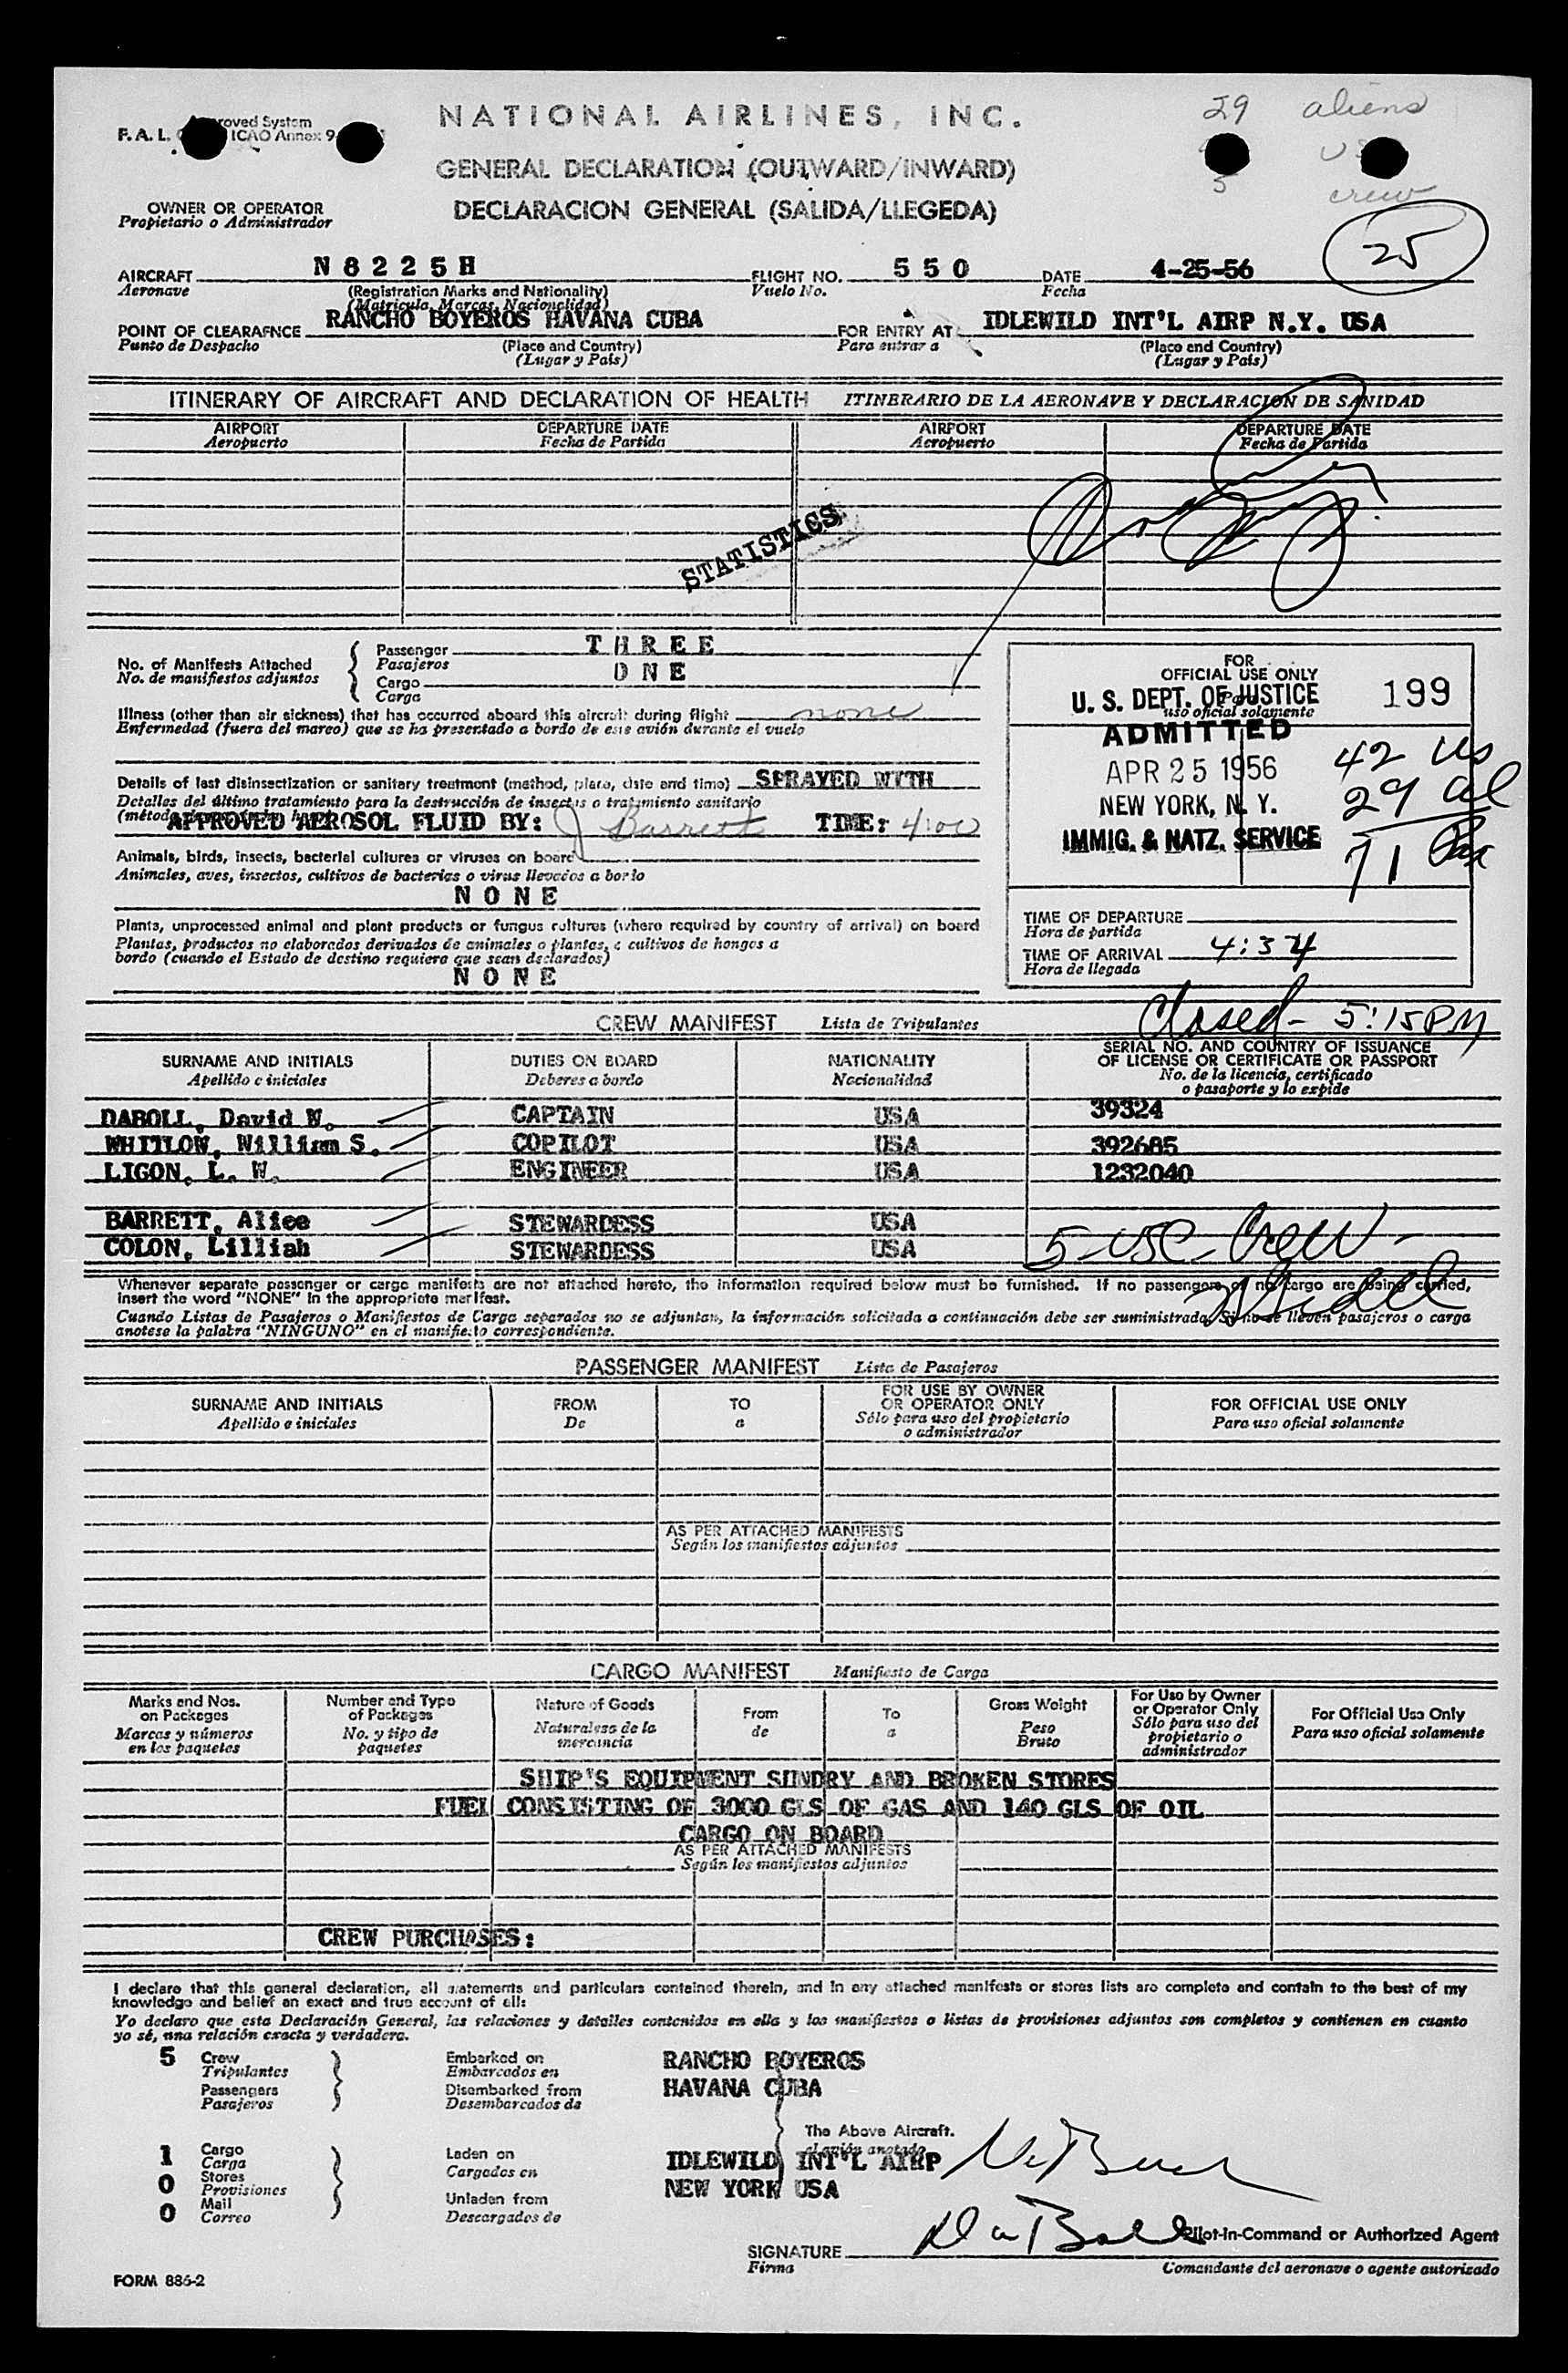 NATIONAL AIRLINES, INC.
29 aliens
F. A. L. ICAO Annex 9
GENERAL DECLARATION (OUTWARD/INWARD)
crew
OWNER OR OPERATOR
DECLARACION GENERAL (SALIDA/LLEGEDA)
Propietario o Administrador
25
AIRCRAFT N 8 2 2 5 H FLIGHT NO. 5 5 0 DATE 4-25-56
Aeronave (Registration Marks and Nationality) Vuelo No. Fecha
(Matricula, Marcas, Nacionalidad)
POINT OF CLEARAFNCE RANCHO BOYEROS HAVANA CUBA FOR ENTRY AT IDLEWILD INT'L AIRP N.Y. USA
Punto de Despacho (Place and Country) Para entrar a (Place and Country)
(Lugar y País) (Lugar y País)
ITINERARY OF AIRCRAFT AND DECLARATION OF HEALTH ITINERARIO DE LA AERONAVE Y DECLARACION DE SANIDAD
AIRPORT DEPARTURE DATE AIRPORT DEPARTURE DATE
Aeropuerto Fecha de Partida Aeropuerto Fecha de Partida
STATISTICS
No. of Manifests Attached Passenger THREE
No. de manifiestos adjuntos Pasajeros
Cargo ONE
Carga
Illness (other than air sickness) that has occurred aboard this aircraft during flight none
Enfermedad (fuera del mareo) que se ha presentado a bordo de este avión durante el vuelo
Details of last disinsectization or sanitary treatment (method, place, date and time) SPRAYED WITH
Detalles del último tratamiento para la destrucción de insectos o tratamiento sanitario
APPROVED AEROSOL FLUID BY: Barrett TIME: 4:00
Animals, birds, insects, bacterial cultures or viruses on board
Animales, aves, insectos, cultivos de bacterias o virus llevados a bordo
NONE
Plants, unprocessed animal and plant products or fungus cultures (where required by country of arrival) on board
Plantas, productos no elaborados derivados de animales o plantas, o cultivos de hongos a
bordo (cuando el Estado de destino requiera que sean declarados)
NONE
FOR
OFFICIAL USE ONLY
Para
uso oficial solamente
U. S. DEPT. OF JUSTICE 199
ADMITTED
APR 25 1956
NEW YORK, N. Y.
IMMIG. & NATZ. SERVICE
42 US
29 al
71 Pax
TIME OF DEPARTURE
Hora de partida
TIME OF ARRIVAL 4:34
Hora de llegada
Closed - 5:15 PM
CREW MANIFEST Lista de Tripulantes
SURNAME AND INITIALS DUTIES ON BOARD NATIONALITY SERIAL NO. AND COUNTRY OF ISSUANCE
OF LICENSE OR CERTIFICATE OR PASSPORT
Apellido e iniciales Deberes a bordo Nacionalidad No. de la licencia, certificado
o pasaporte y lo expide
DABOLL, David W. CAPTAIN USA 39324
WHITLOW, William S. COPILOT USA 392685
LIGON, L. W. ENGINEER USA 1232040
BARRETT, Alice STEWARDESS USA
COLON, Lilliah STEWARDESS USA
5-USC-Crew-
Whenever separate passenger or cargo manifests are not attached hereto, the information required below must be furnished. If no passengers or no cargo are being carried,
insert the word "NONE" in the appropriate manifest.
Cuando Listas de Pasajeros o Manifiestos de Carga separados no se adjuntan, la información solicitada a continuación debe ser suministrada. Si no se lleven pasajeros o carga
anotese la palabra "NINGUNO" en el manifiesto correspondiente.
PASSENGER MANIFEST Lista de Pasajeros
SURNAME AND INITIALS FROM TO FOR USE BY OWNER FOR OFFICIAL USE ONLY
OR OPERATOR ONLY
Apellido e iniciales De a Sólo para uso del propietario Para uso oficial solamente
o administrador
AS PER ATTACHED MANIFESTS
Según los manifiestos adjuntos
CARGO MANIFEST Manifiesto de Carga
Marks and Nos. Number and Type Nature of Goods From To Gross Weight For Use by Owner For Official Use Only
on Packages of Packages or Operator Only
Marcas y números No. y tipo de Naturalesa de la de a Peso Sólo para uso del Para uso oficial solamente
en los paquetes paquetes mercancia Bruto propietario o
administrador
SHIP'S EQUIPMENT SUNDRY AND BROKEN STORES
FUEL CONSISTING OF 3000 GLS OF GAS AND 140 GLS OF OIL
CARGO ON BOARD
AS PER ATTACHED MANIFESTS
Según los manifiestos adjuntos
CREW PURCHASES:
I declare that this general declaration, all statements and particulars contained therein, and in any attached manifests or stores lists are complete and contain to the best of my
knowledge and belief an exact and true account of all:
Yo declaro que esta Declaración General, las relaciones y detalles contenidos en ella y los manifiestos o listas de provisiones adjuntos son completos y contienen en cuanto
yo sé, una relación exacta y verdadera.
5 Crew Embarked on RANCHO BOYEROS
Tripulantes Embarcados en
Passengers Disembarked from HAVANA CUBA
Pasajeros Desembarcados de
The Above Aircraft.
el avión anotado
1 Cargo Laden on IDLEWILD INT'L AIRP
Carga Cargados en
0 Stores NEW YORK USA
Provisiones
0 Mail Unladen from
Correo Descargados de
SIGNATURE Pilot-in-Command or Authorized Agent
Firma Comandante del aeronave o agente autorizado
FORM 886-2